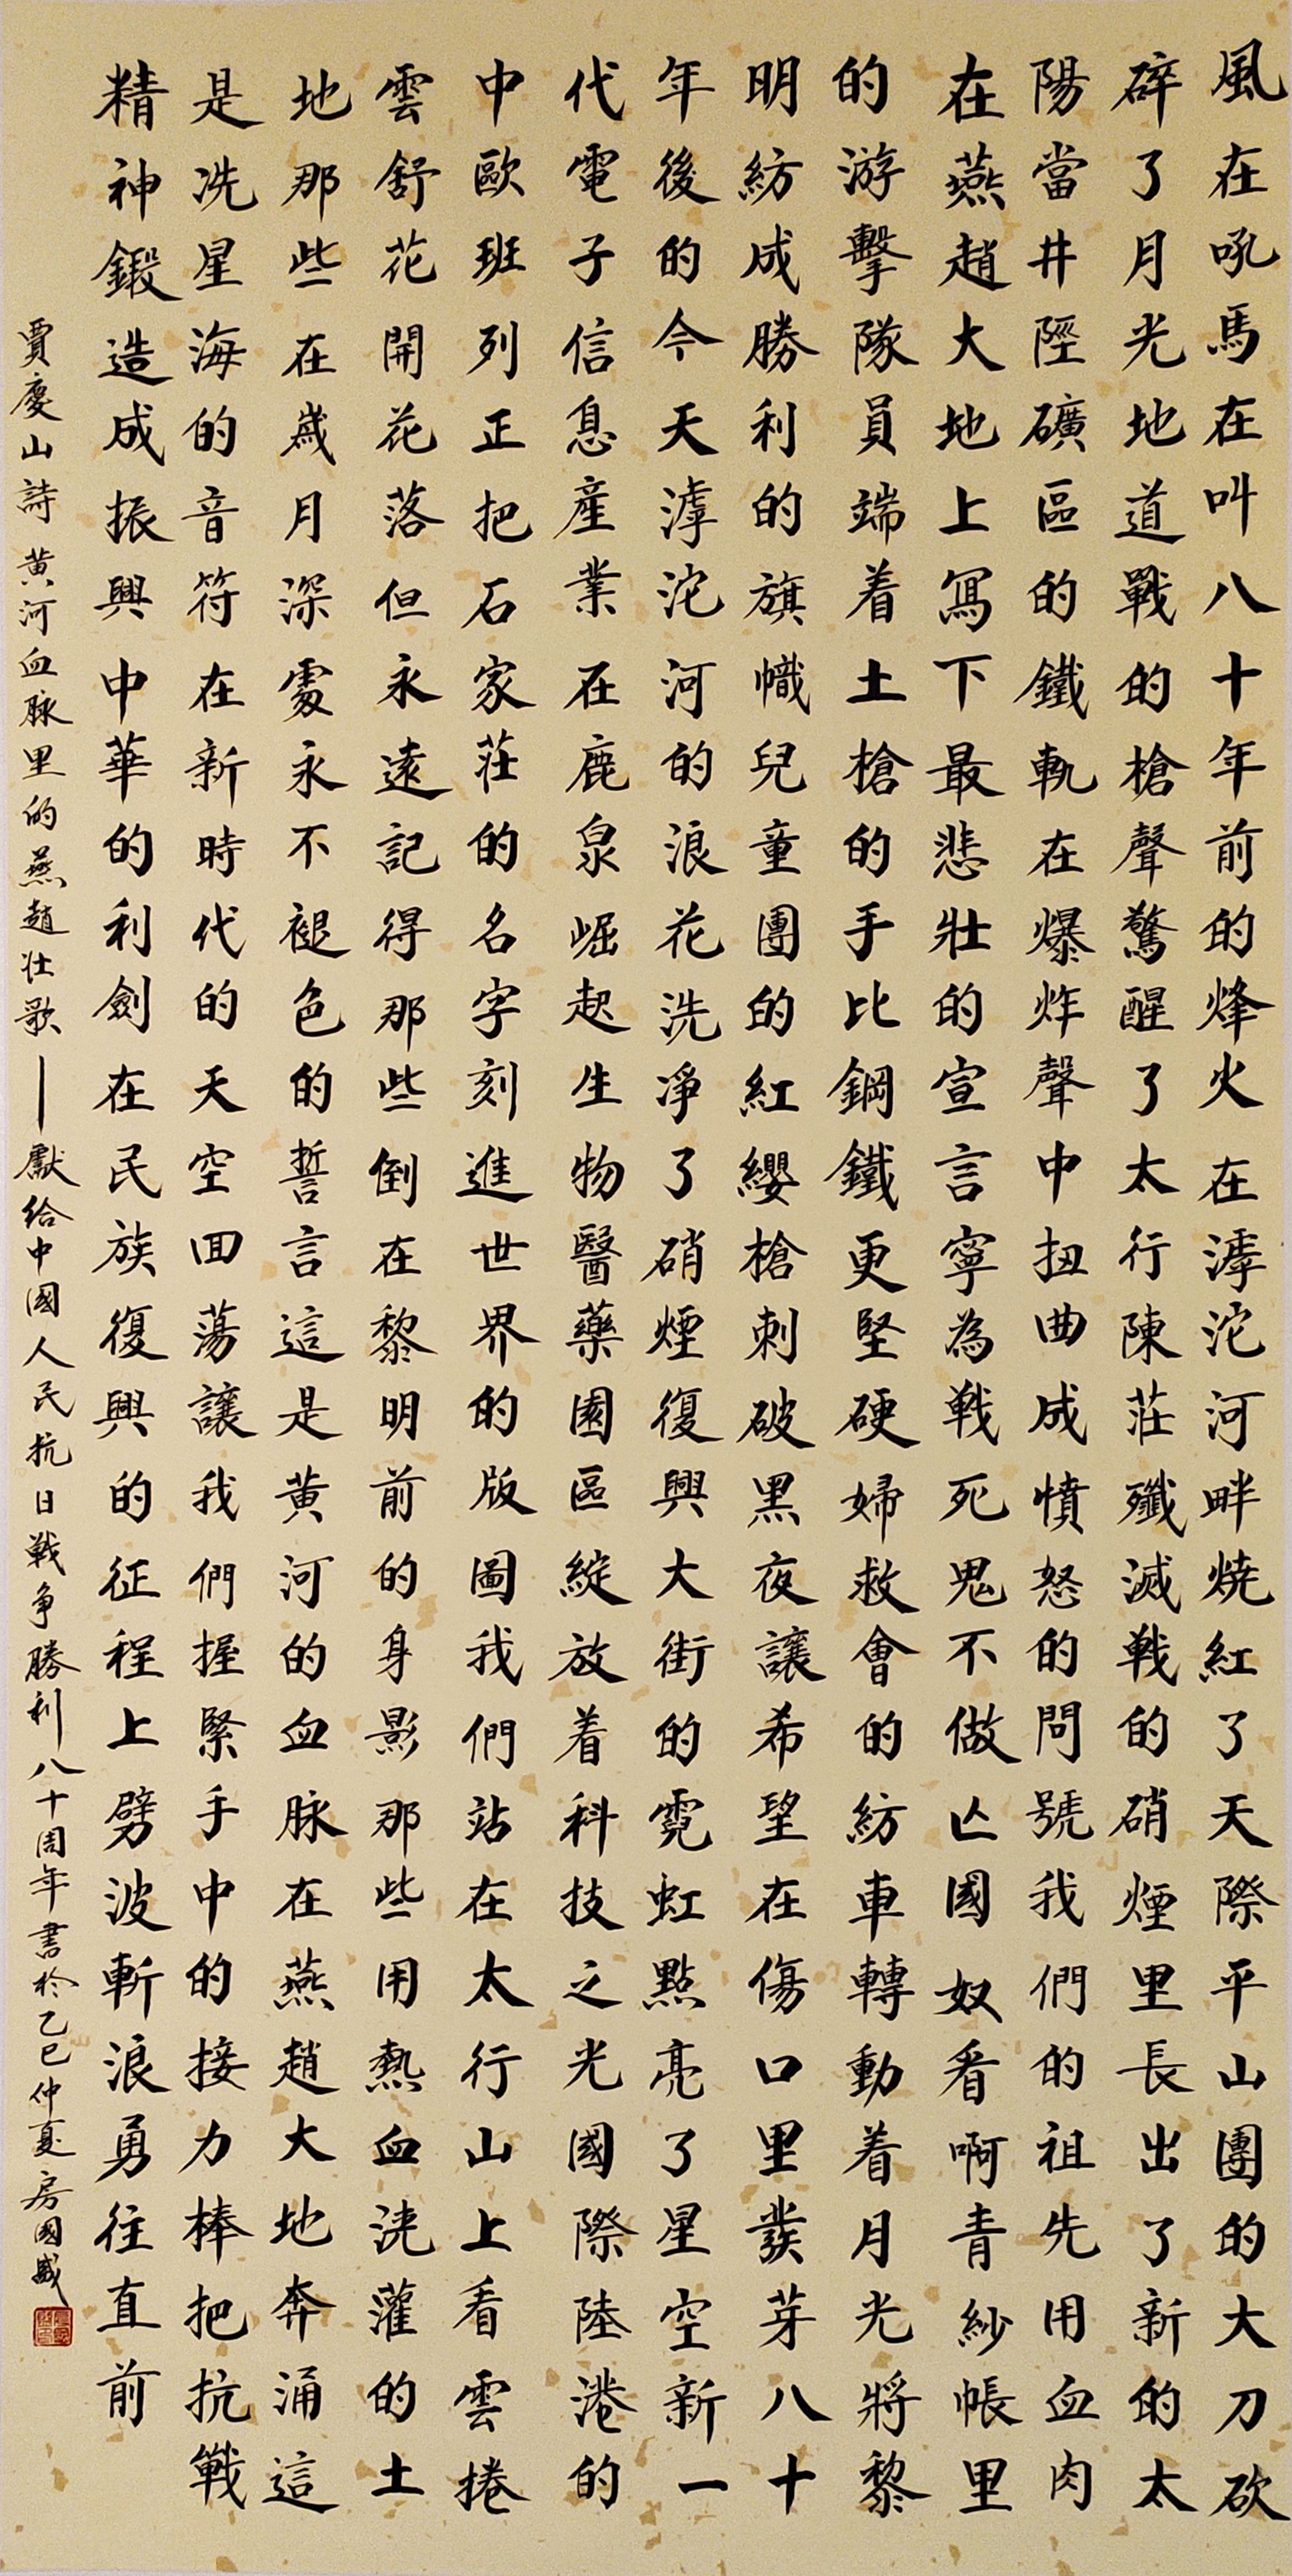 風在吼馬在叫八十年前的烽火在滹沱河畔燒紅了天際平山團的大刀砍
碎了月光地道戰的槍聲驚醒了太行陳莊殲滅戰的硝煙里長出了新的太
陽當井陘礦區的鐵軌在爆炸聲中扭曲成憤怒的問號我們的祖先用血肉
在燕趙大地上寫下最悲壯的宣言寧為戰死鬼不做亡國奴看啊青紗帳里
的游擊隊員端着土槍的手比鋼鐵更堅硬婦救會的紡車轉動着月光將黎
明紡成勝利的旗幟兒童團的紅纓槍刺破黑夜讓希望在傷口里發芽八十
年後的今天滹沱河的浪花洗凈了硝煙復興大街的霓虹點亮了星空新一
代電子信息產業在鹿泉崛起生物醫藥園區綻放着科技之光國際陸港的
中歐班列正把石家莊的名字刻進世界的版圖我們站在太行山上看雲捲
雲舒花開花落但永遠記得那些倒在黎明前的身影那些用熱血澆灌的土
地那些在歲月深處永不褪色的誓言這是黃河的血脉在燕趙大地奔涌這
是冼星海的音符在新時代的天空回蕩讓我們握緊手中的接力棒把抗戰
精神鍛造成振興中華的利劍在民族復興的征程上劈波斬浪勇往直前
賈慶山詩 黃河血脉里的燕趙壯歌—獻給中國人民抗日戰争勝利八十周年書於乙巳仲夏房國盛